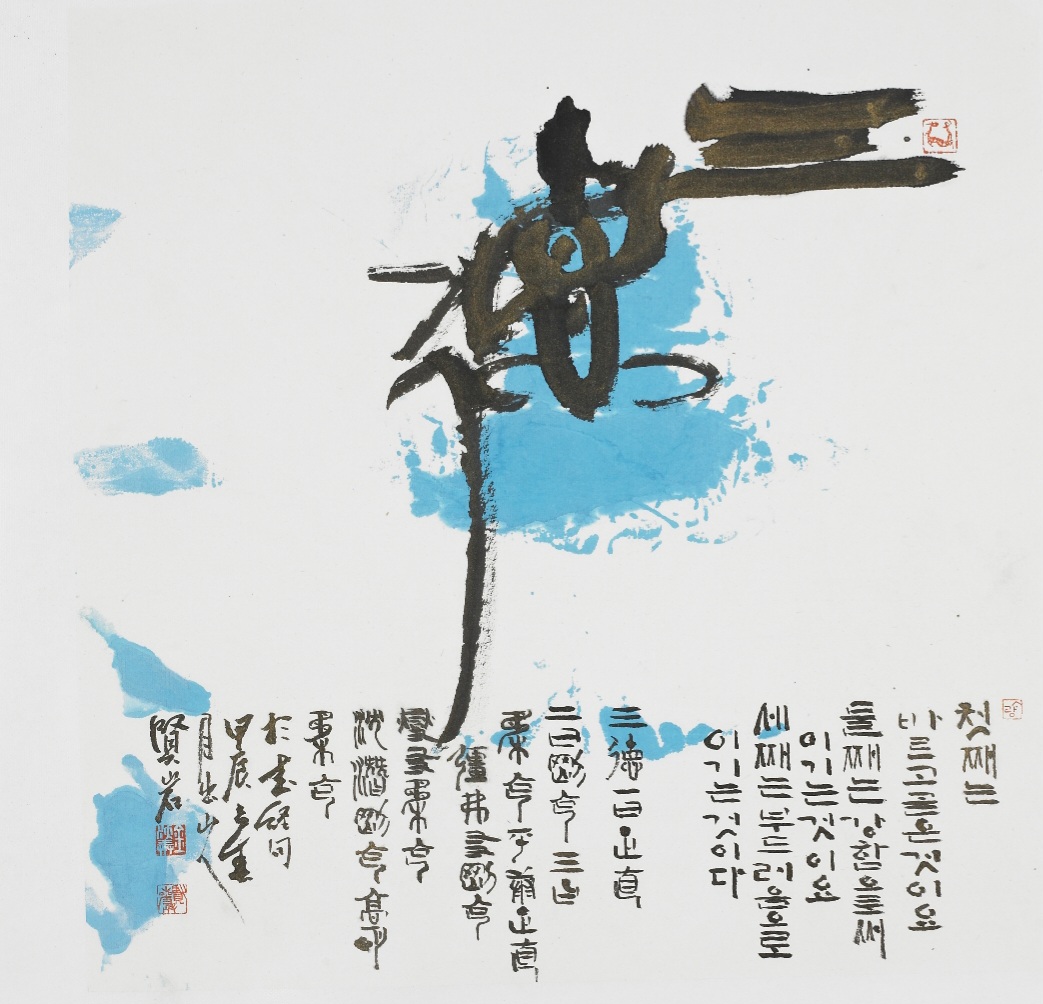 三德
첫째는
바르고 곧은 것이요
둘째는 강함으로써
이기는 것이요
세째는 부드러움으로
이기는 것이다
三德一曰正直
二曰剛克三曰
柔克平康正直
彊弗友剛克
燮友柔克
沈潛剛克高明
柔克
於書経句
甲辰
月出山人
賢岩